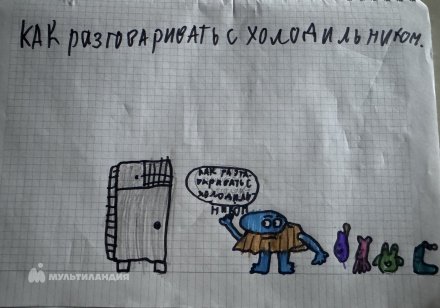 КАК РАЗГОВАРИВАТЬ С ХОЛОДИЛЬНИКОМ.
КАК РАЗГО
ВАРИВАТЬ С
ХОЛОДИЛЬ
НИКОМ
МУЛЬТИЛАНДИЯ